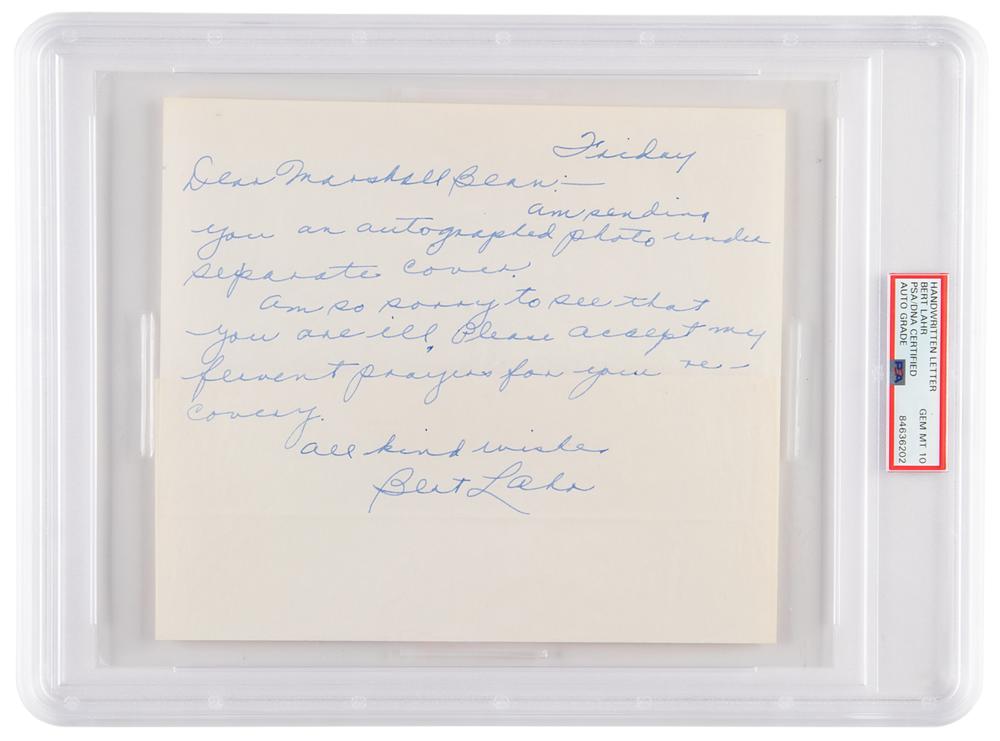 Friday
Dear Marshall Bean:—
am sending
you an autographed photo under
separate cover.
Am so sorry to see that
you are ill. Please accept my
fervent prayers for your re-
covery.
All kind wishes
Bert Lahr
HANDWRITTEN LETTER
BERT LAHR
PSA/DNA CERTIFIED
AUTO GRADE GEM MT 10
PSA 84636202